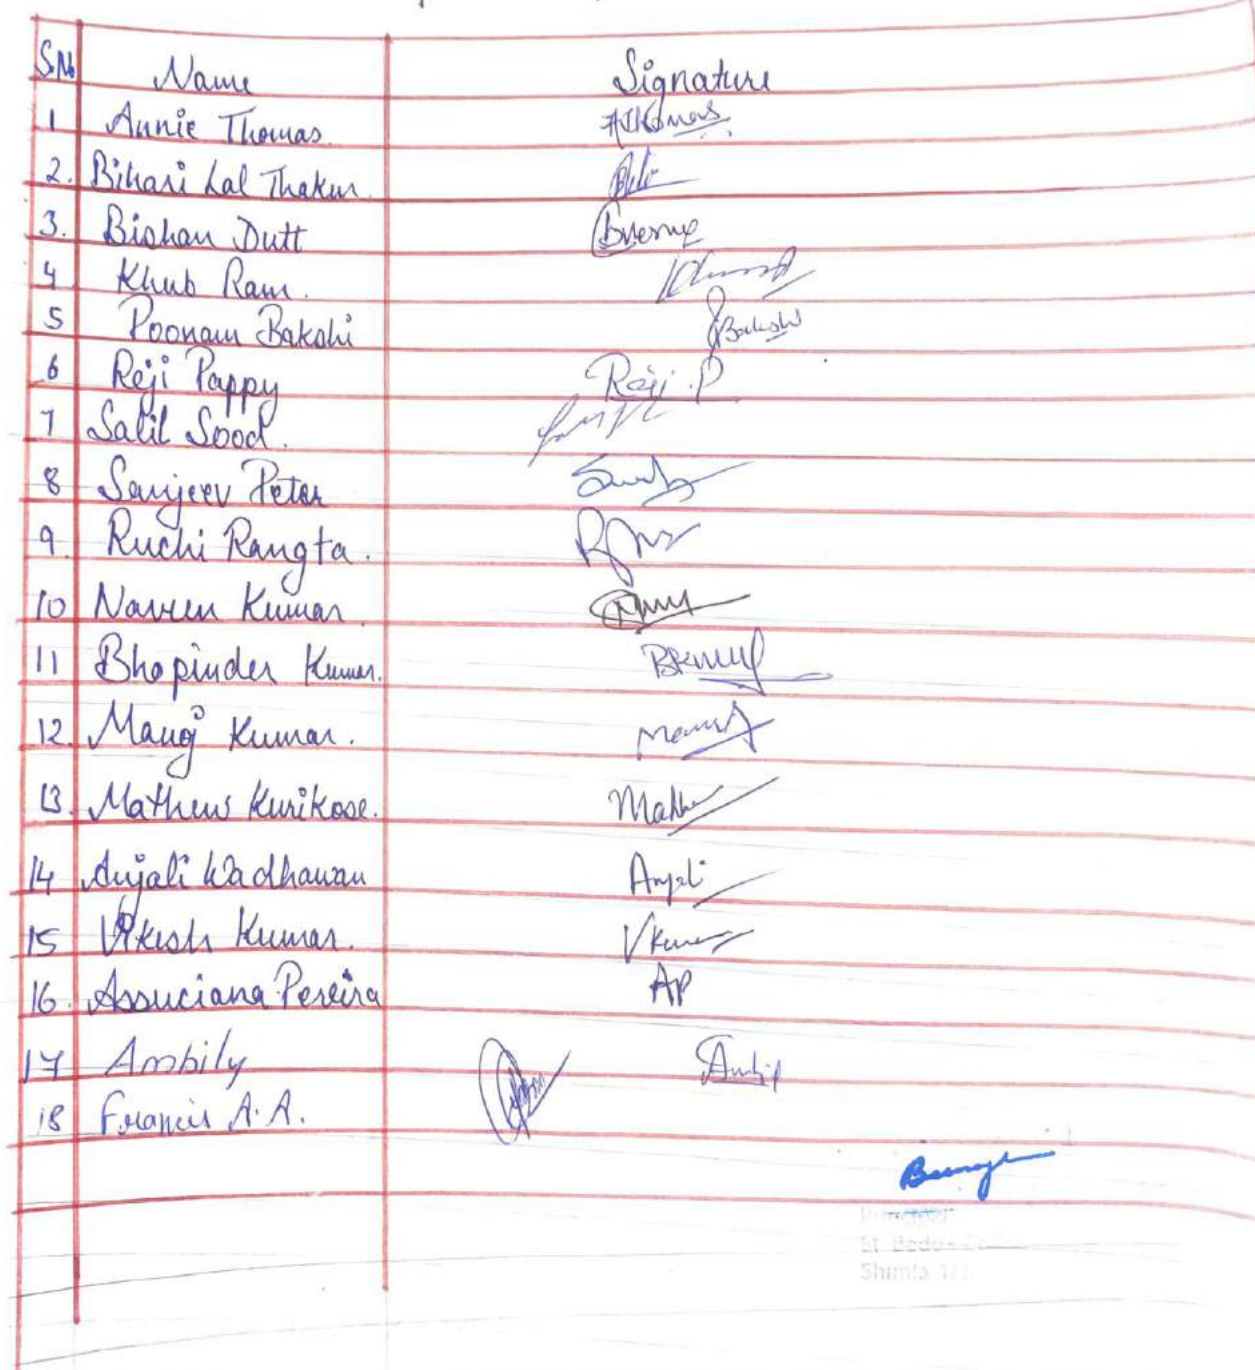 S.No Name Signature
1 Annie Thomas. AThomas
2. Bihari Lal Thakur.
3. Bishan Dutt
4 Khub Ram.
5 Poonam Bakshi Bakshi
6 Reji Pappy Reji P
7 Salil Sood.
8 Sanjeev Peter
9. Ruchi Rangta.
10 Naveen Kumar.
11 Bhopinder Kumar.
12. Manoj Kumar.
13. Mathew Kurikose.
14 Anjali Wadhawan Anjali
15 Vikesh Kumar. VKumar
16. Assuciana Pereira AP
17 Ambily
18 Francis A.A.
Principal
St. Bede's
Shimla